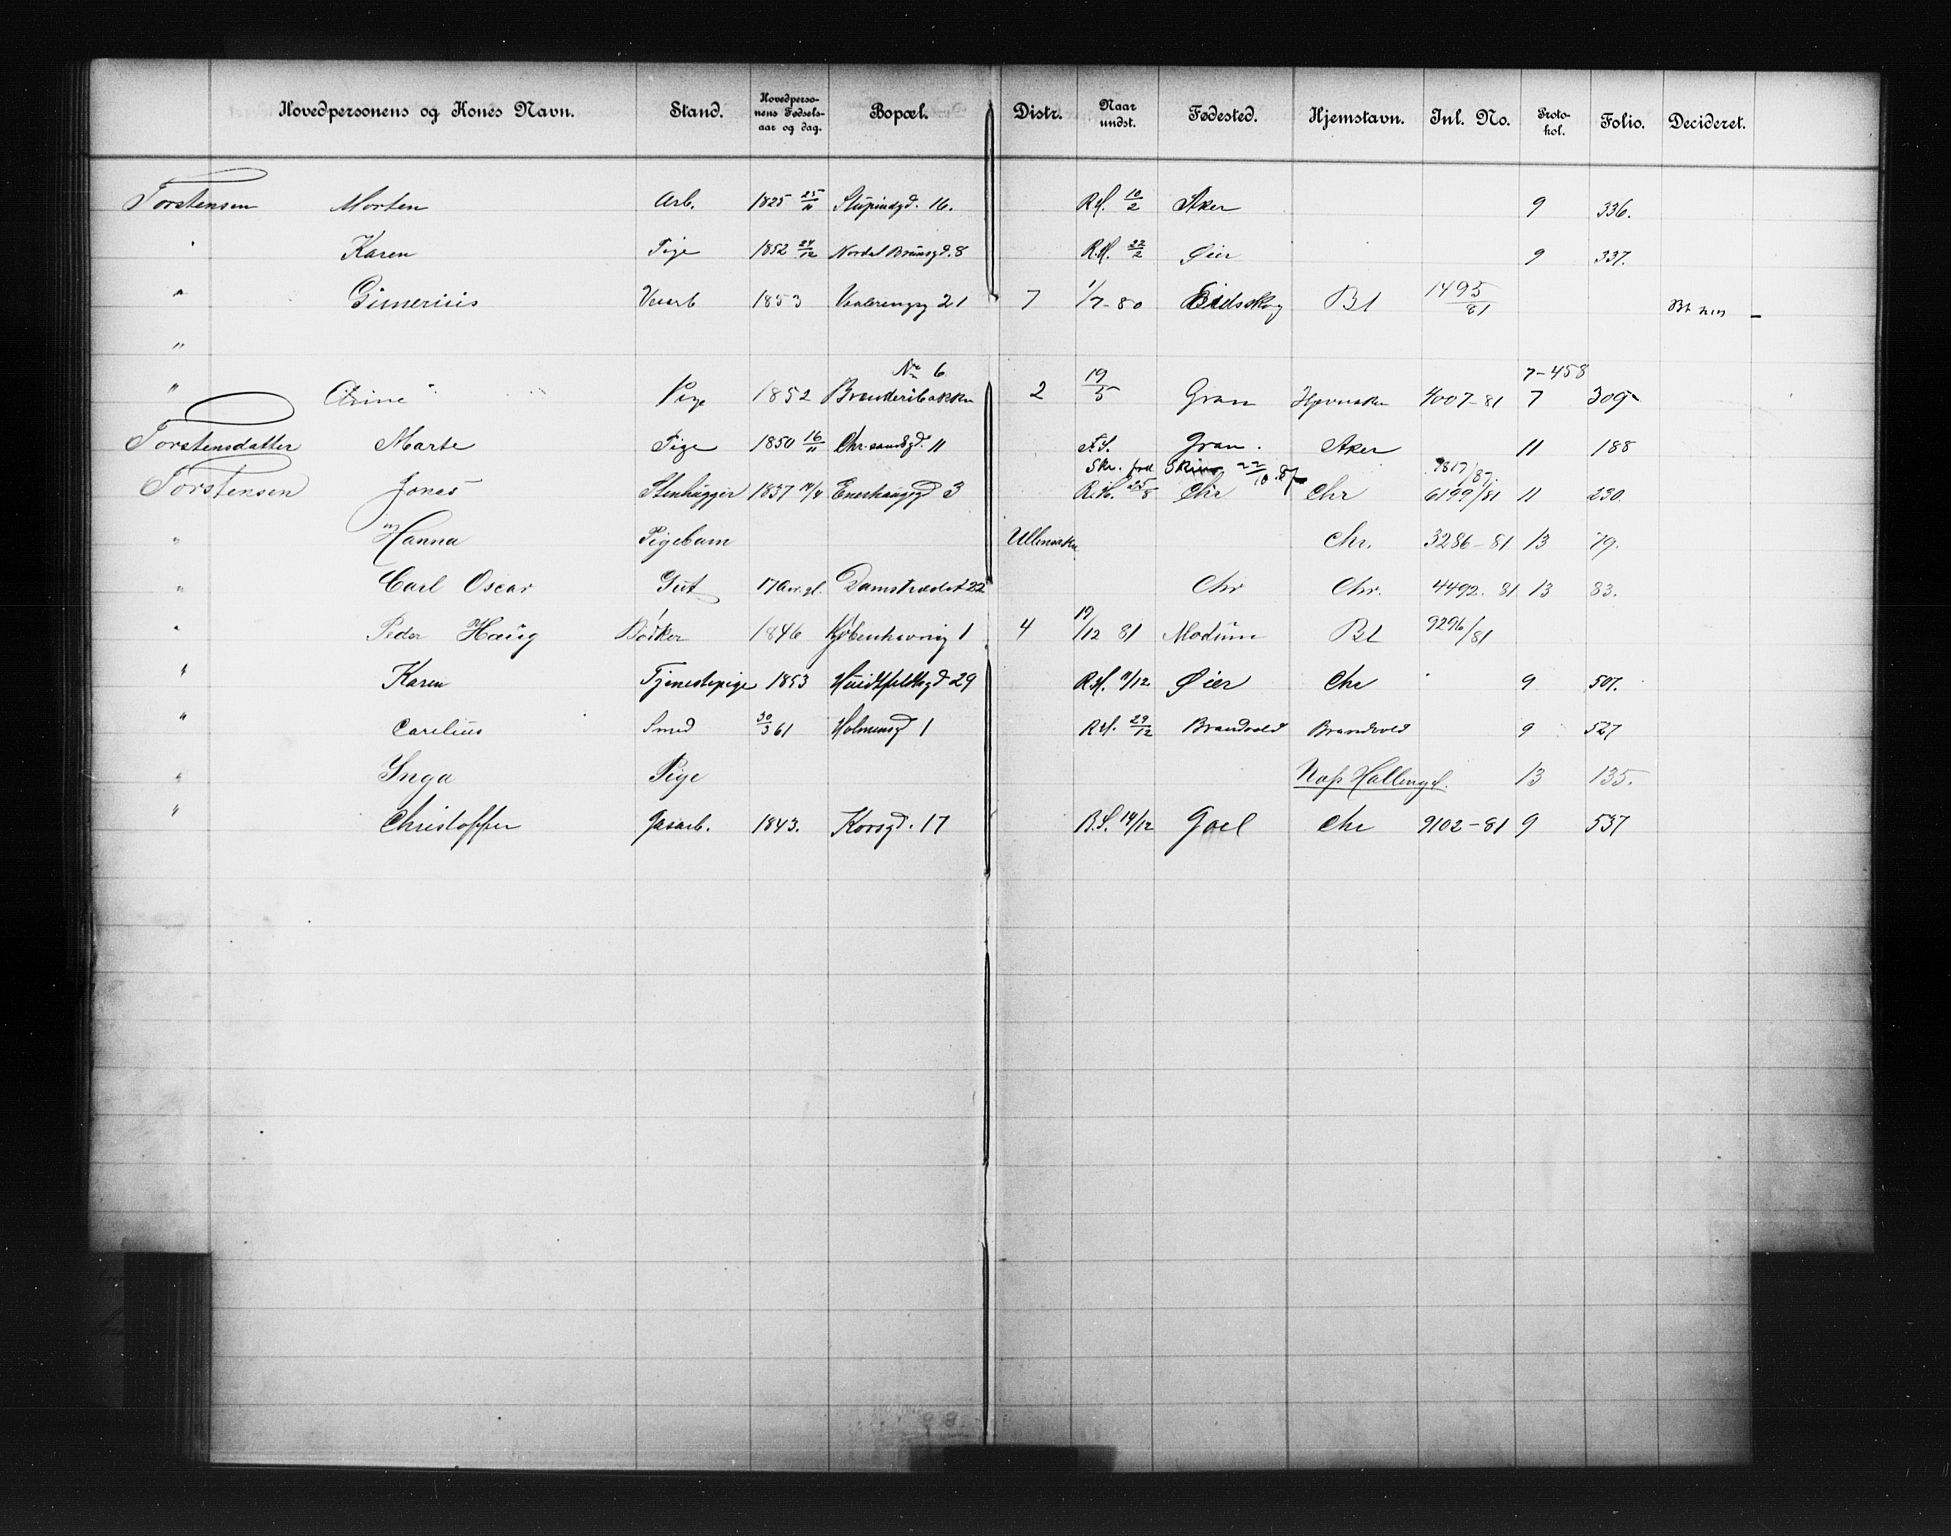 Hovedpersonens og Kones Navn. Stand. Hovedperso-nens Fødsels-aar og dag. Bopæl. Distr. Naar undst. Fødested. Hjemstavn. Inl. No. Proto-kol. Folio. Decideret.
Torstensen Morten Arb. 1825 25/11 Stupindgd. 16. R.H. 10/2 Aker 9 336.
" Karen Pige 1852 24/12 Nordal Brunsgd. 8 R.H. 22/2 Øier 9 337.
" Gunerius Veiarb 1853 Vaalerengg 21 7 1/7-80 Eidskog Bl 1495/81
"
No 6 7-458
" Pige 1852 2 19/5 Gran 4007-81 7 309
Torstensdatter Marte Pige 1850 16/11 Chr.sandsgd. 11 F.S. Gran. Aker 11 188
Skr. fød 22/10 87 7817/87.
Torstensen Jonas Stenhugger 1837 14/4 Enerhauggd 3 R.H. 25/8 Chr Chr 6199/81 11 230.
" Hanna Pigebarn Ullensaker Chr. 3286-81 13 79.
" Carl Oscar Gut 17 Aar gl. Damstrædet 22 Chr Chr. 4492. 81 13 83.
" Peder Haug Bødker 1846 Kjøbenhavng 1 4 19/12 81 Modum Bl 9296/81
" Karen Tjenestepige 1853 Huidtfeldtsgd 29 R.H. 11/12 Øier Chr 9 507.
" Carelius Smed 30/3 61 Holmensgd 1 R.H. 29/12 Brandvold Brandvold 9 527
" Inga Pige Næs Hallingd. 13 135.
" Christoffer Gasarb. 1843. Korsgd. 17 B.S. 14/12 Goel Chr 9102-81 9 537